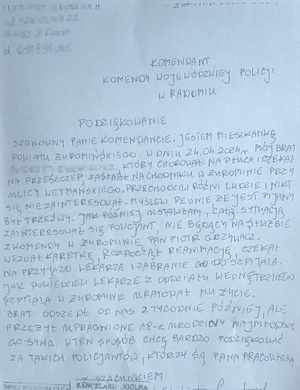 KOMENDANT
KOMENDY WOJEWÓDZKIEJ POLICJI
W RADOMIU
PODZIĘKOWANIE
SZANOWNY PANIE KOMENDANCIE. JESTEM MIESZKANKĄ
POWIATU ŻUROMIŃSKIEGO. W DNIU 24.04.2024r, MÓJ BRAT
KTÓRY CHOROWAŁ NA PŁUCA I CZEKAŁ
NA PRZESZCZEP ZASŁABŁ NA CHODNIKU W ŻUROMINIE PRZY
ULICY WETMAŃSKIEGO. PRZECHODZILI RÓŻNI LUDZIE I NIKT
SIĘ NIE ZAINTERESOWAŁ. MYŚLELI PEWNIE ŻE JEST PIJANY
BYŁ TRZEŹWY. JAK PÓŹNIEJ USTALIŁAM, CAŁĄ SYTUACJĄ
ZAINTERESOWAŁ SIĘ POLICJANT, NIE BĘDĄCY NA SŁUŻBIE
Z KOMENDY W ŻUROMINIE, PAN PIOTR
WEZWAŁ KARETKĘ, ROZPOCZĄŁ REANIMACJĘ, CZEKAŁ
NA PRZYJAZD LEKARZA I ZABRANIE GO DO SZPITALA.
JAK POWIEDZIEŁ LEKARZ Z ODDZIAŁU WEWNĘTRZNEGO
SZPITALA W ŻUROMINIE URATOWAŁ MU ŻYCIE.
BRAT ODSZEDŁ OD NAS 2 TYGODNIE PÓŹNIEJ, ALE
PRZEŻYŁ UPRAGNIONE 18-e URODZINY NAJMŁODSZE
GO SYNA. W TEN SPOSÓB CHCĘ BARDZO PODZIĘKOWAĆ
ZA TAKICH POLICJANTÓW, KTÓRZY SĄ PANA PRACOWNIKAMI
Z SZACUNKIEM
KANCELARIA OGÓLNA